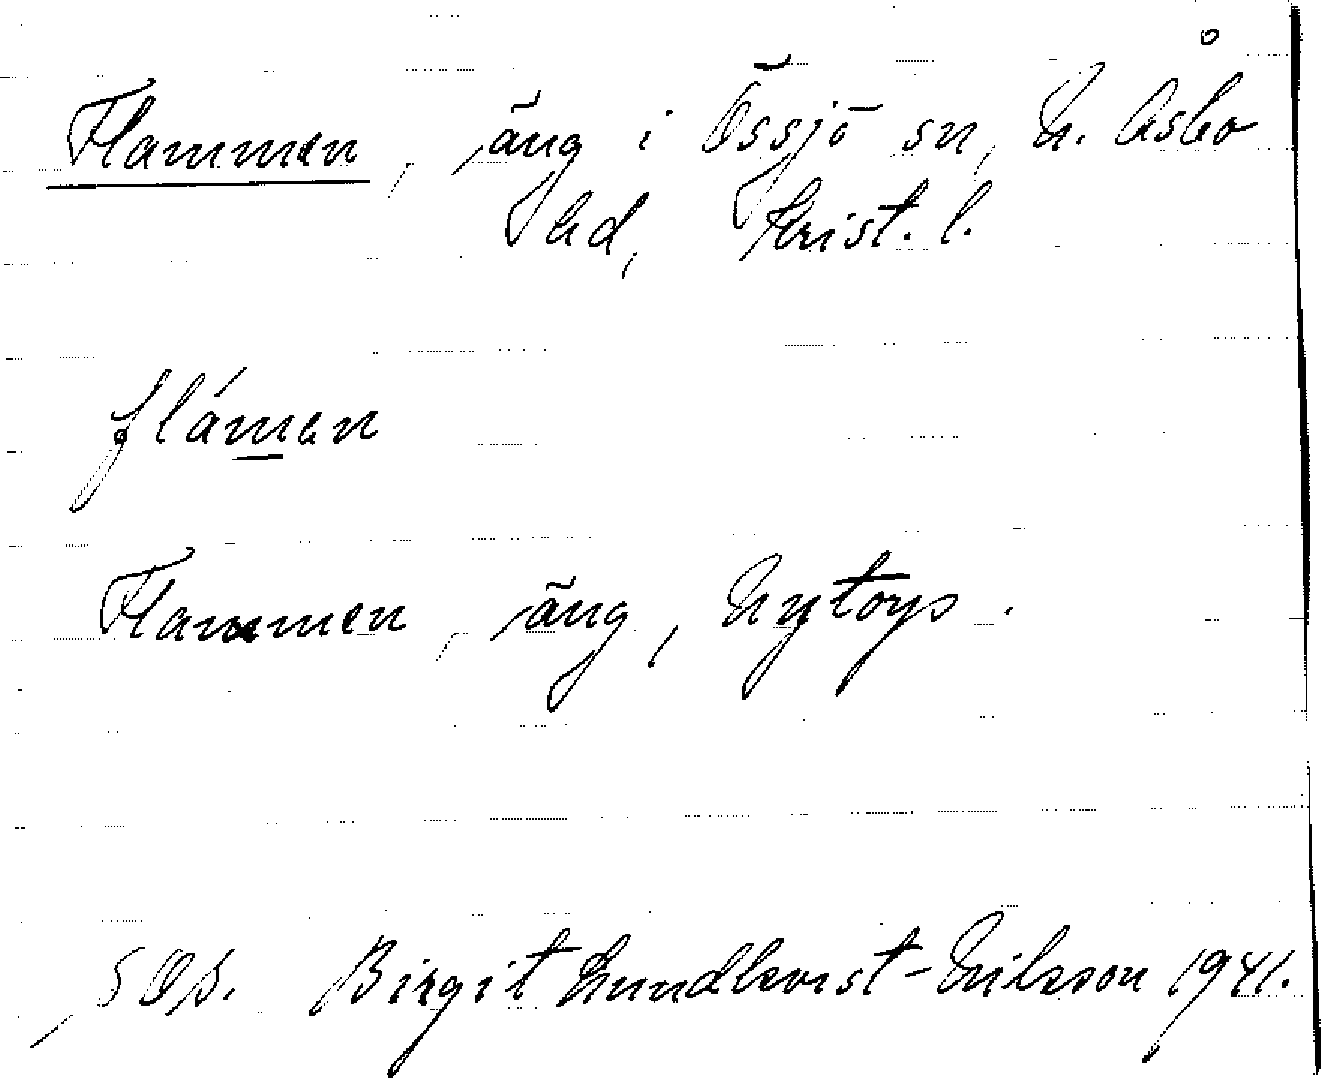 Flammen, äng i Össjö sn, N. Åsbo
hd, Krist. l.
flámen
Flammen, äng, Nytorp.
SOS. Birgit Lundkvist-Nilsson 1941.